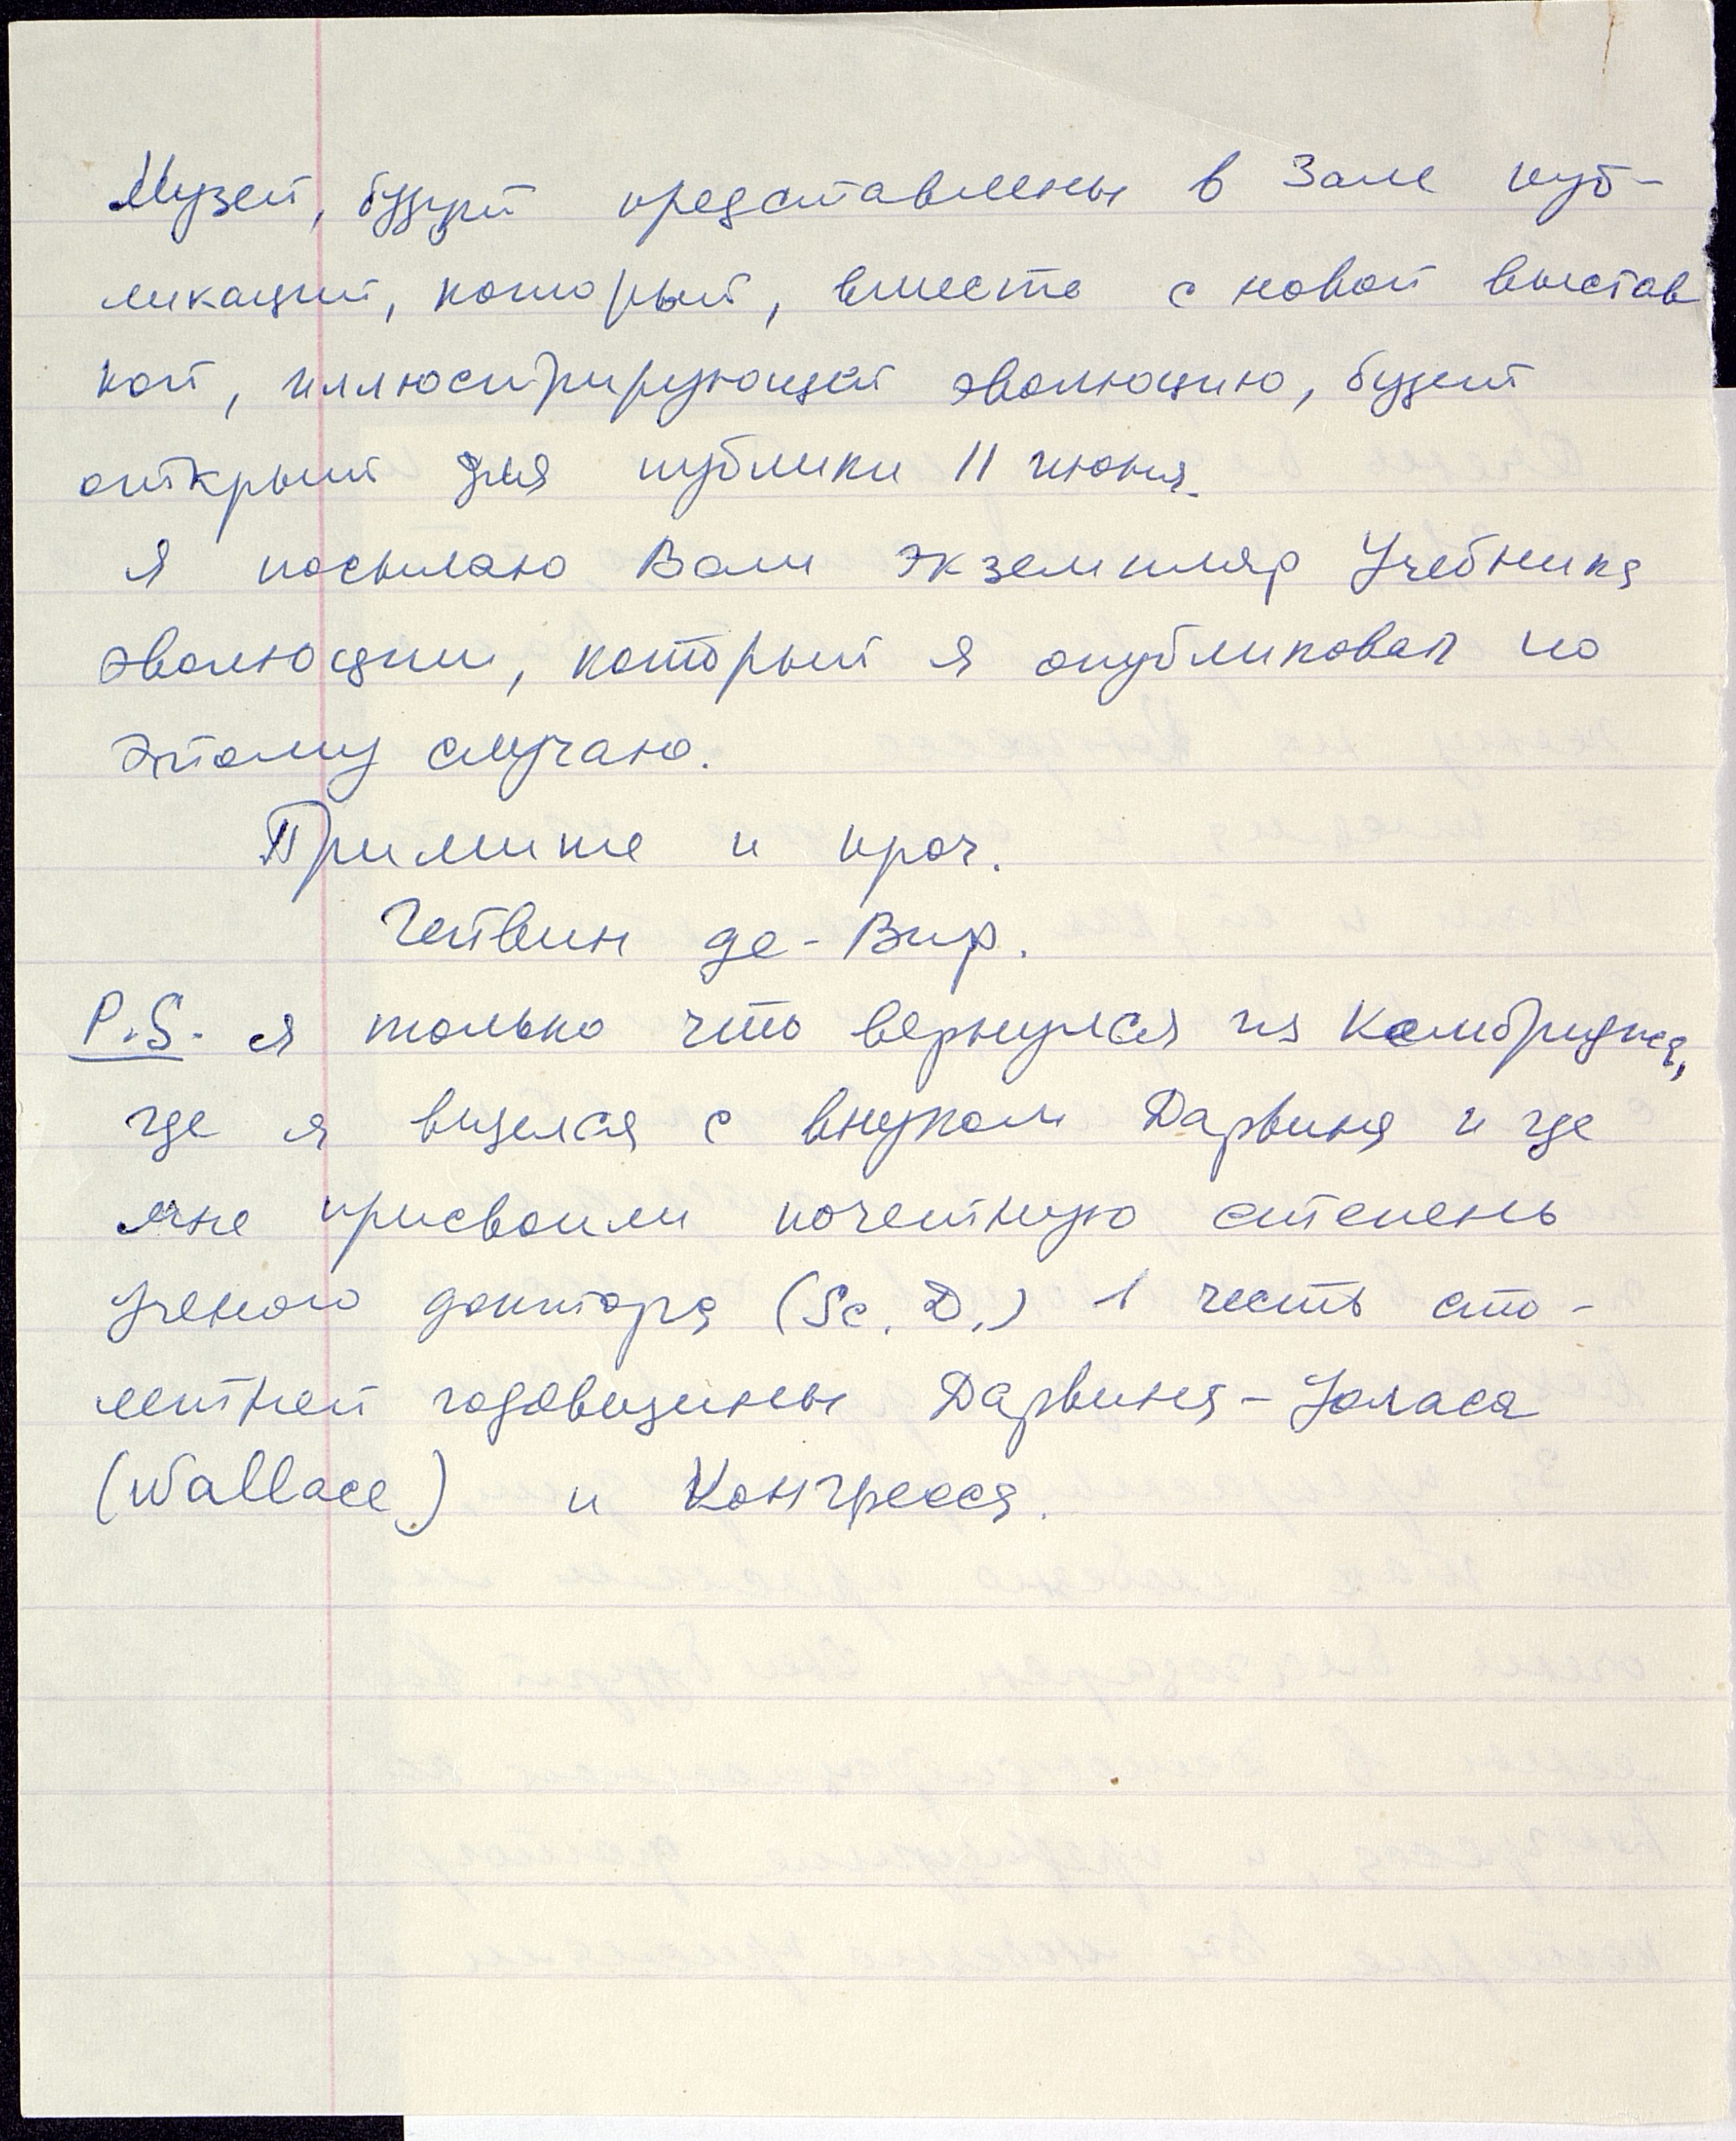 Музей, будут представлены в Зале пуб-
ликаций, который, вместе с новой выстав
кой, иллюстрирующей эволюцию, будет
открыт для публики 11 июня.
Я посылаю Вам экземпляр Учебника
эволюции, который я опубликовал по
этому случаю.
Примите и проч.
Гетвин де-Вир.
P.S. я только что вернулся из Кембриджа,
где я виделся с внуком Дарвина и где
мне присвоили почетную степень
ученого доктора (Sc. D.) в честь сто-
летней годовщины Дарвина-Уоласа
(Wallace) и Конгресса.